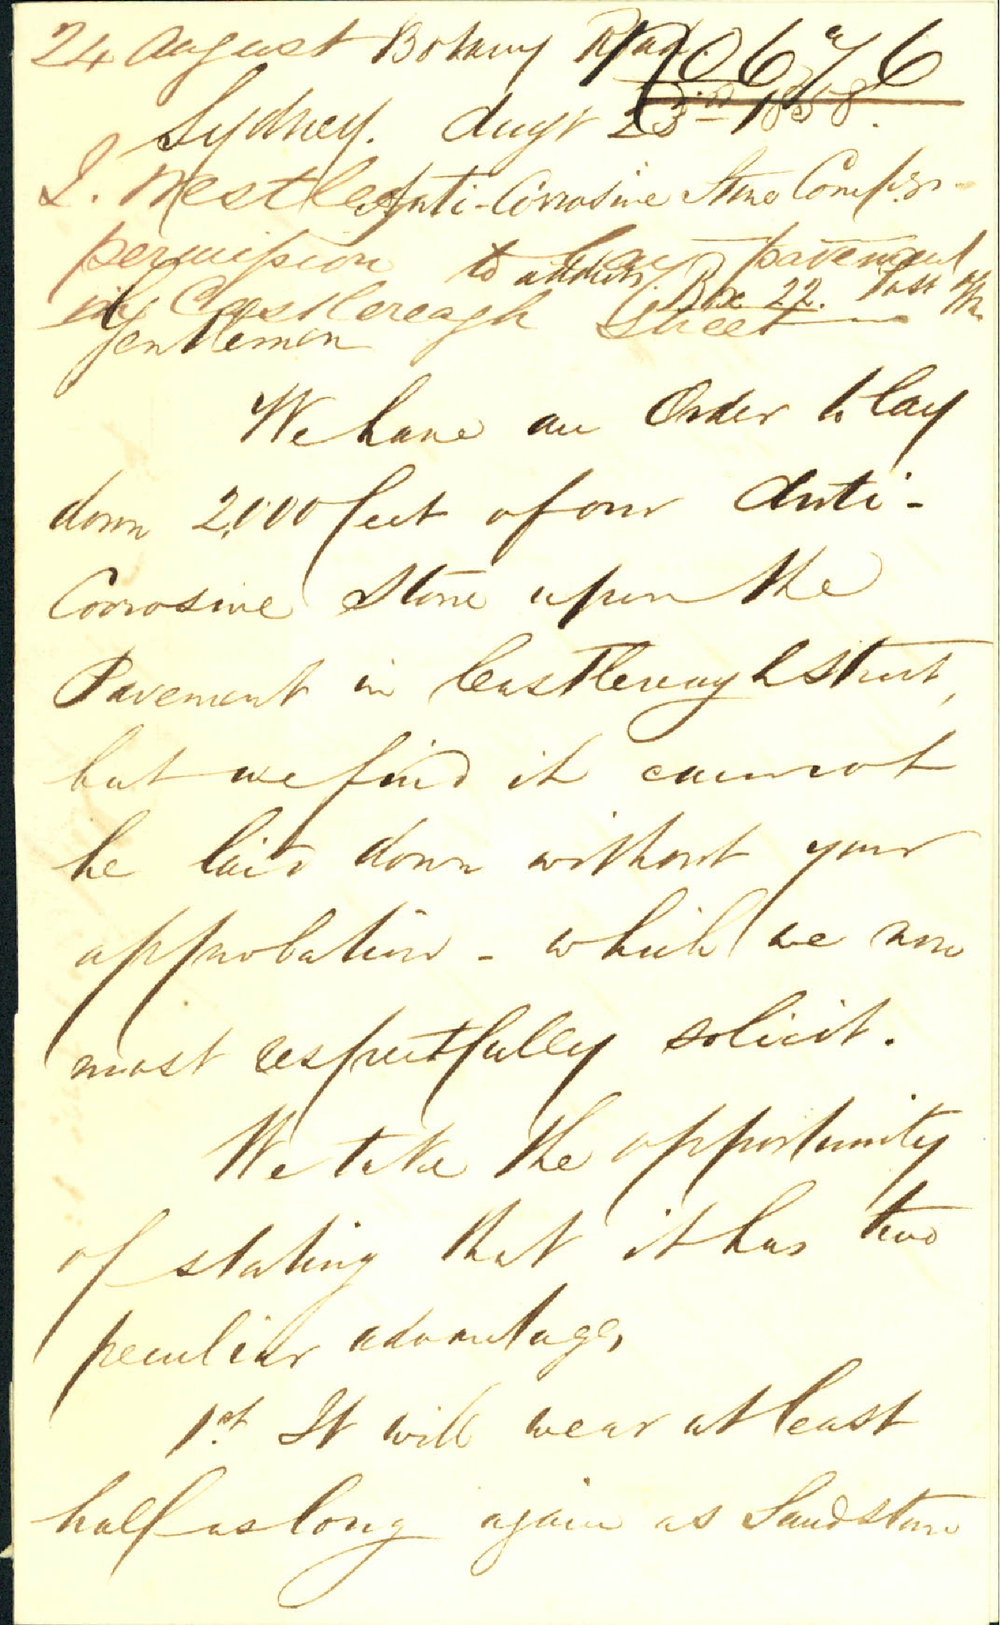 24 August Botany Road. 676
Sydney. Augt 23rd 1858.
J. Westley Anti-Corrosive Stone Compy
permission to lay pavement
to address. Box 22. Post Off.
in Castlereagh Street
Gentlemen
We have an Order to lay
down 2,000 feet of our Anti-
Corrosive Stone upon the
Pavement in Castlereagh Street,
but we find it cannot
be laid down without your
approbation - which we now
most respectfully solicit.
We take the opportunity
of stating that it has two
peculiar advantages
1st. It will wear at least
half as long again as Sandstone